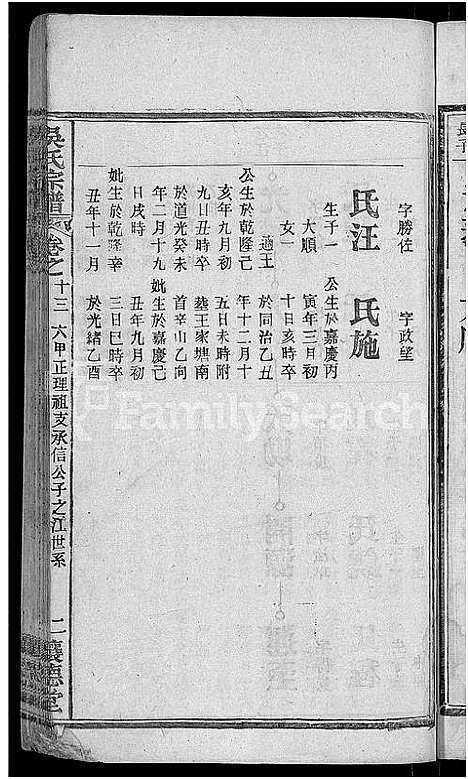 字勝佐
氏汪
生子一
大順
女一
適王
公生於乾隆己
亥年九月初
九日丑時卒
於道光癸未
年二月十九
日戌時
妣生於乾隆辛
丑年十一月
字政望
氏施
公生於嘉慶丙
寅年三月初
十日亥時卒
於同治乙丑
年十二月十
五日未時附
塟王家塘南
首辛山乙向
妣生於嘉慶己
丑年九月初
三日巳時卒
於光緒乙酉
吳氏宗譜 卷之十三 六甲正理祖支承信公子之江世系 二 讓德堂
FamilySearch